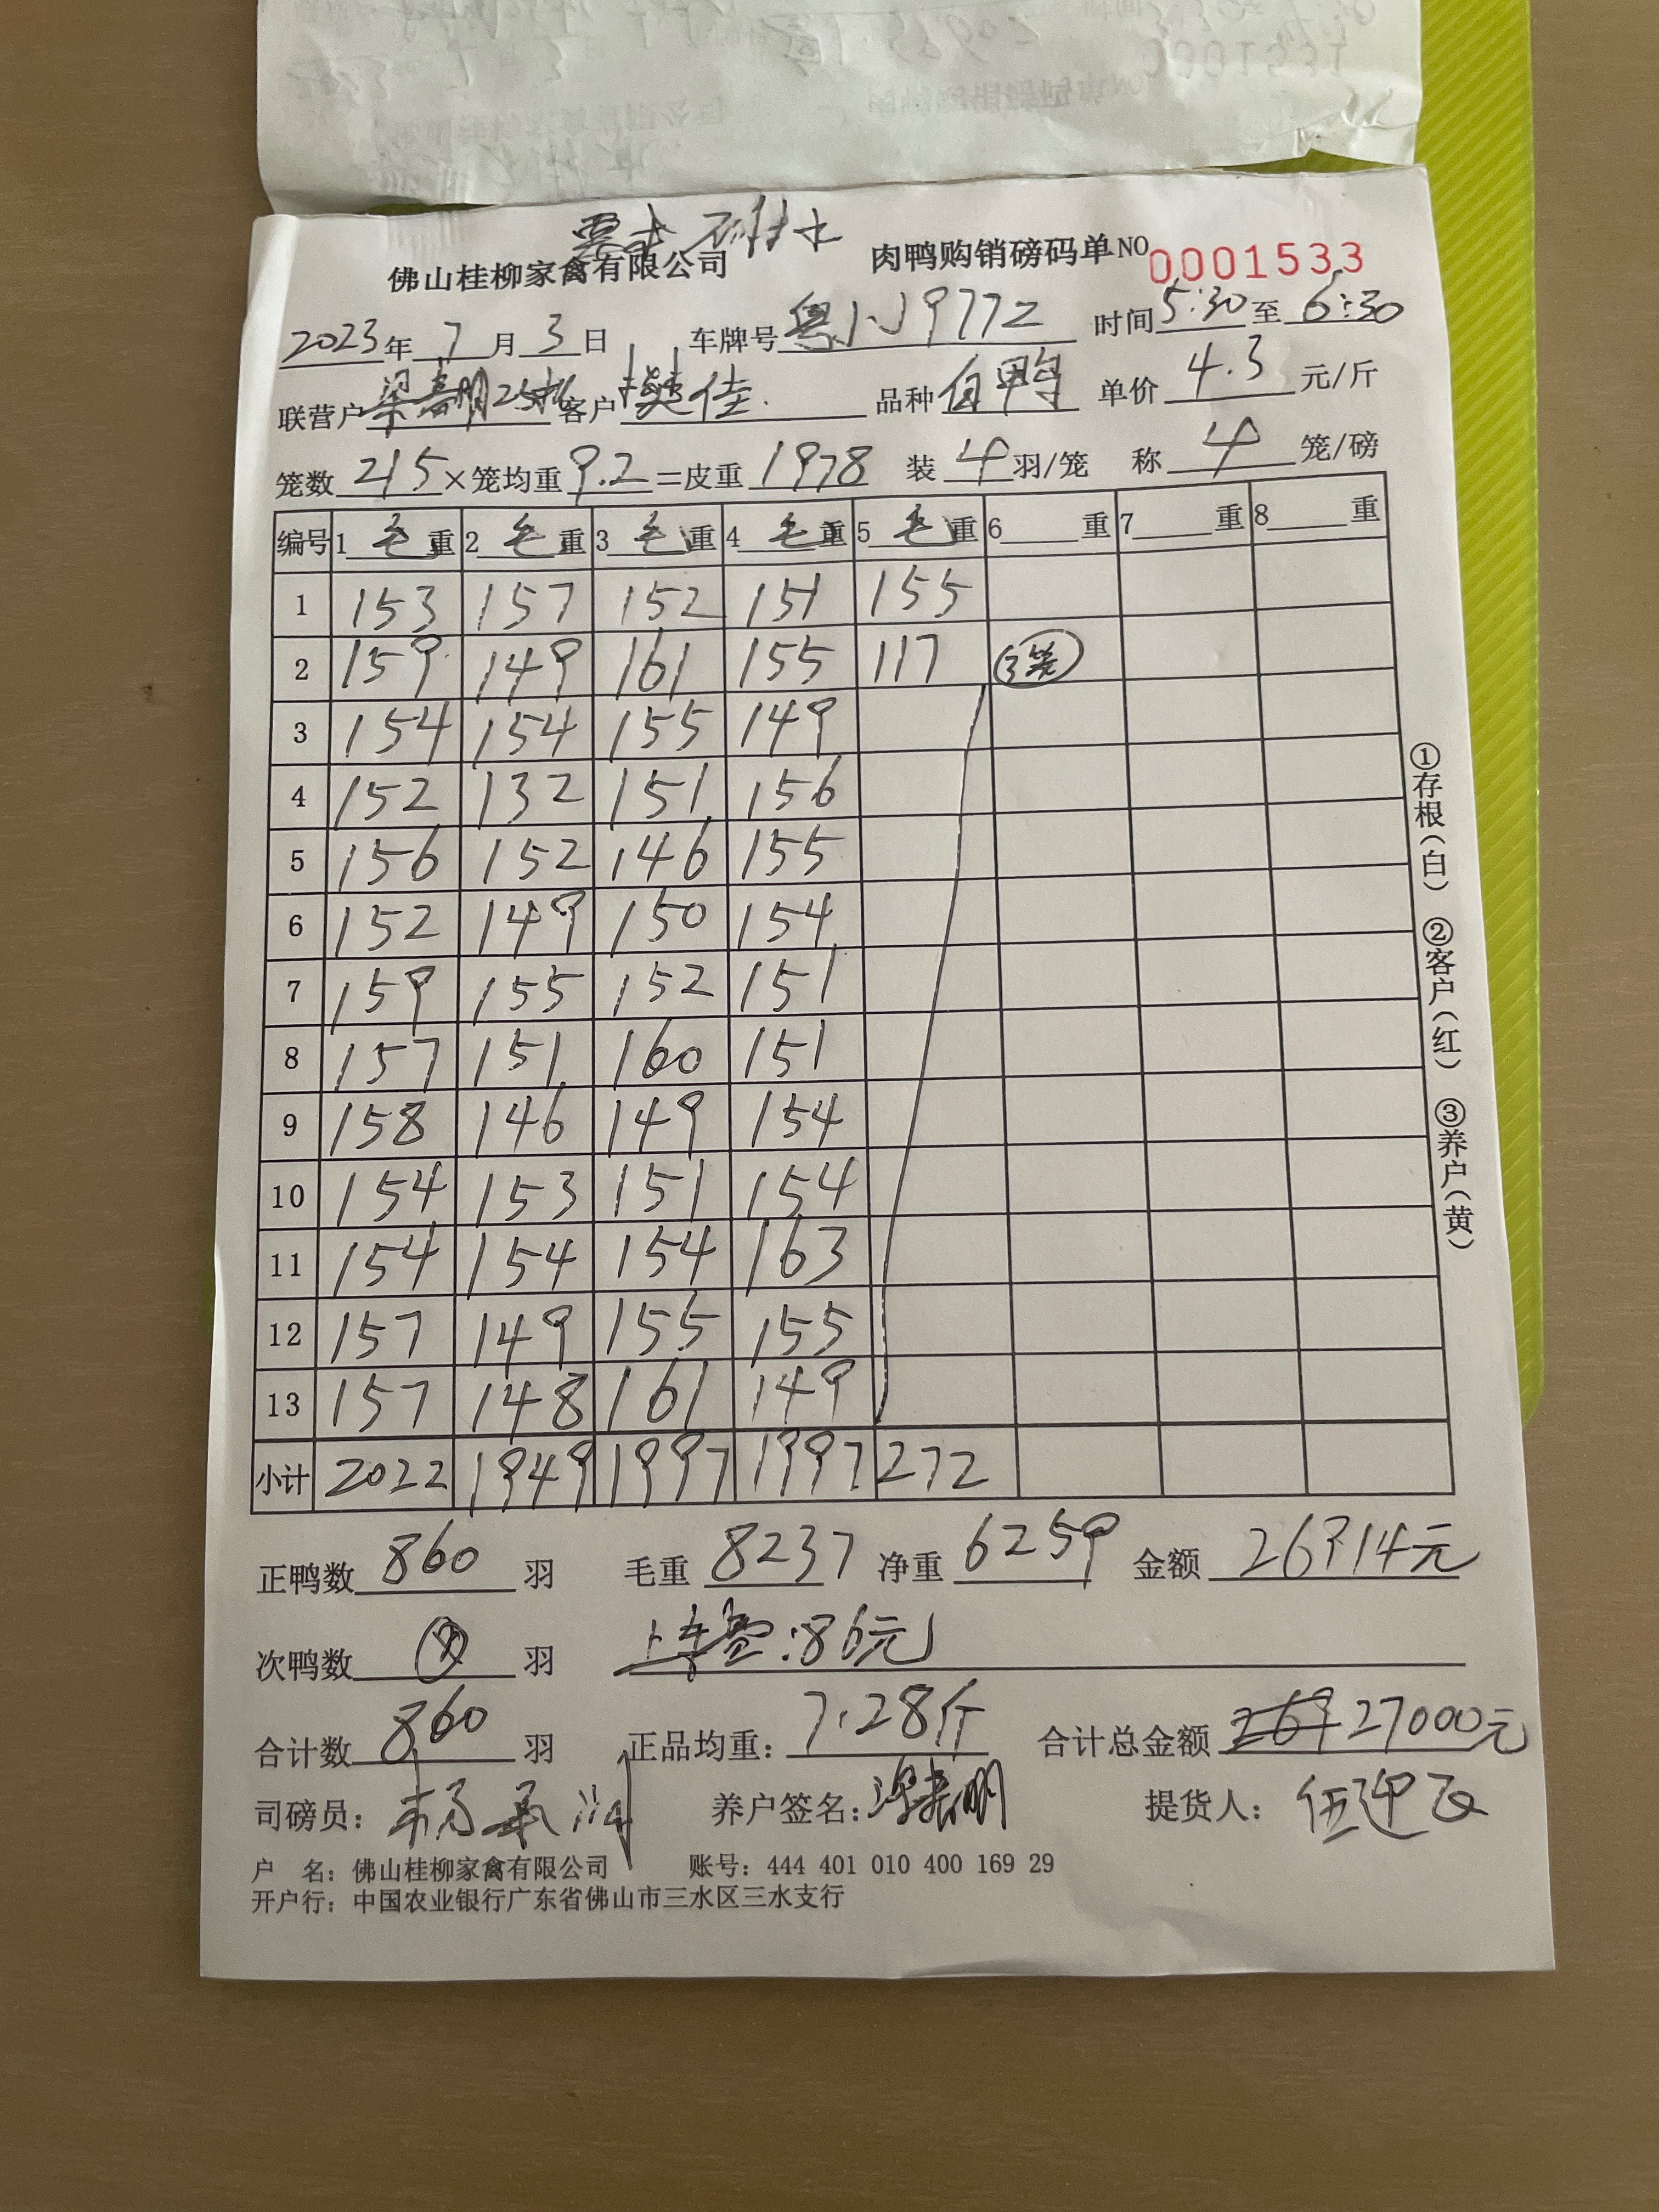 佛山桂柳家禽有限公司 肉鸭购销磅码单NO 0001533
2023年7月3日 车牌号 时间5:30至6:30
联营户 客户樊佳 品种白鸭 单价4.3元/斤
笼数215×笼均重9.2=皮重1978 装4羽/笼 称4笼/磅
编号 1毛重 2毛重 3毛重 4毛重 5毛重 6重 7重 8重
1 153 157 152 151 155
2 159 149 161 155 117 3笼
3 154 154 155 149
4 152 132 151 156
5 156 152 146 155
6 152 149 150 154
7 159 155 152 151
8 157 151 160 151
9 158 146 149 154
10 154 153 151 154
11 154 154 154 163
12 157 149 155 155
13 157 148 161 149
小计 2022 1949 1997 1997 272
正鸭数860羽 毛重8237 净重6259 金额26914元
次鸭数羽 :86元
合计数860羽 正品均重:7.28斤 合计总金额27000元
司磅员: 养户签名: 提货人:
户 名:佛山桂柳家禽有限公司 账号:444 401 010 400 169 29
开户行:中国农业银行广东省佛山市三水区三水支行
①存根(白) ②客户(红) ③养户(黄)